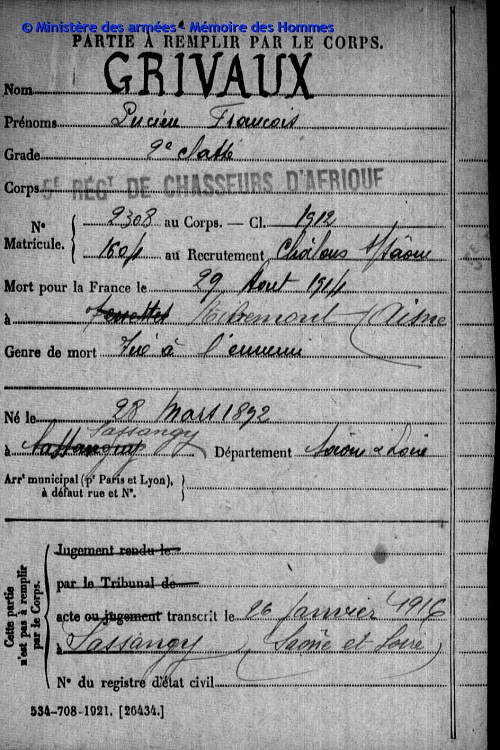 © Ministère des armées - Mémoire des Hommes
PARTIE À REMPLIR PAR LE CORPS.
Nom GRIVAUX
Prénoms Lucien François
Grade 2e classe
Corps 5e RÉGT DE CHASSEURS D'AFRIQUE
No Matricule. { 2308 au Corps. — Cl. 1912
1604 au Recrutement Châlons s/ Saône
Mort pour la France le 29 Aout 1914
à Ribemont (Aisne
Genre de mort Tué à l'ennemi
Né le 28 Mars 1892
Sassangy
à Sassanguy Département Saône & Loire
Arrt municipal (pr Paris et Lyon), }
à défaut rue et No.
Cette partie n'est pas à remplir par le Corps.
Jugement rendu le
par le Tribunal de
acte ou jugement transcrit le 26 janvier 1916
à Sassangy (Saône et Loire)
No du registre d'état civil
534-708-1921. [26434.]